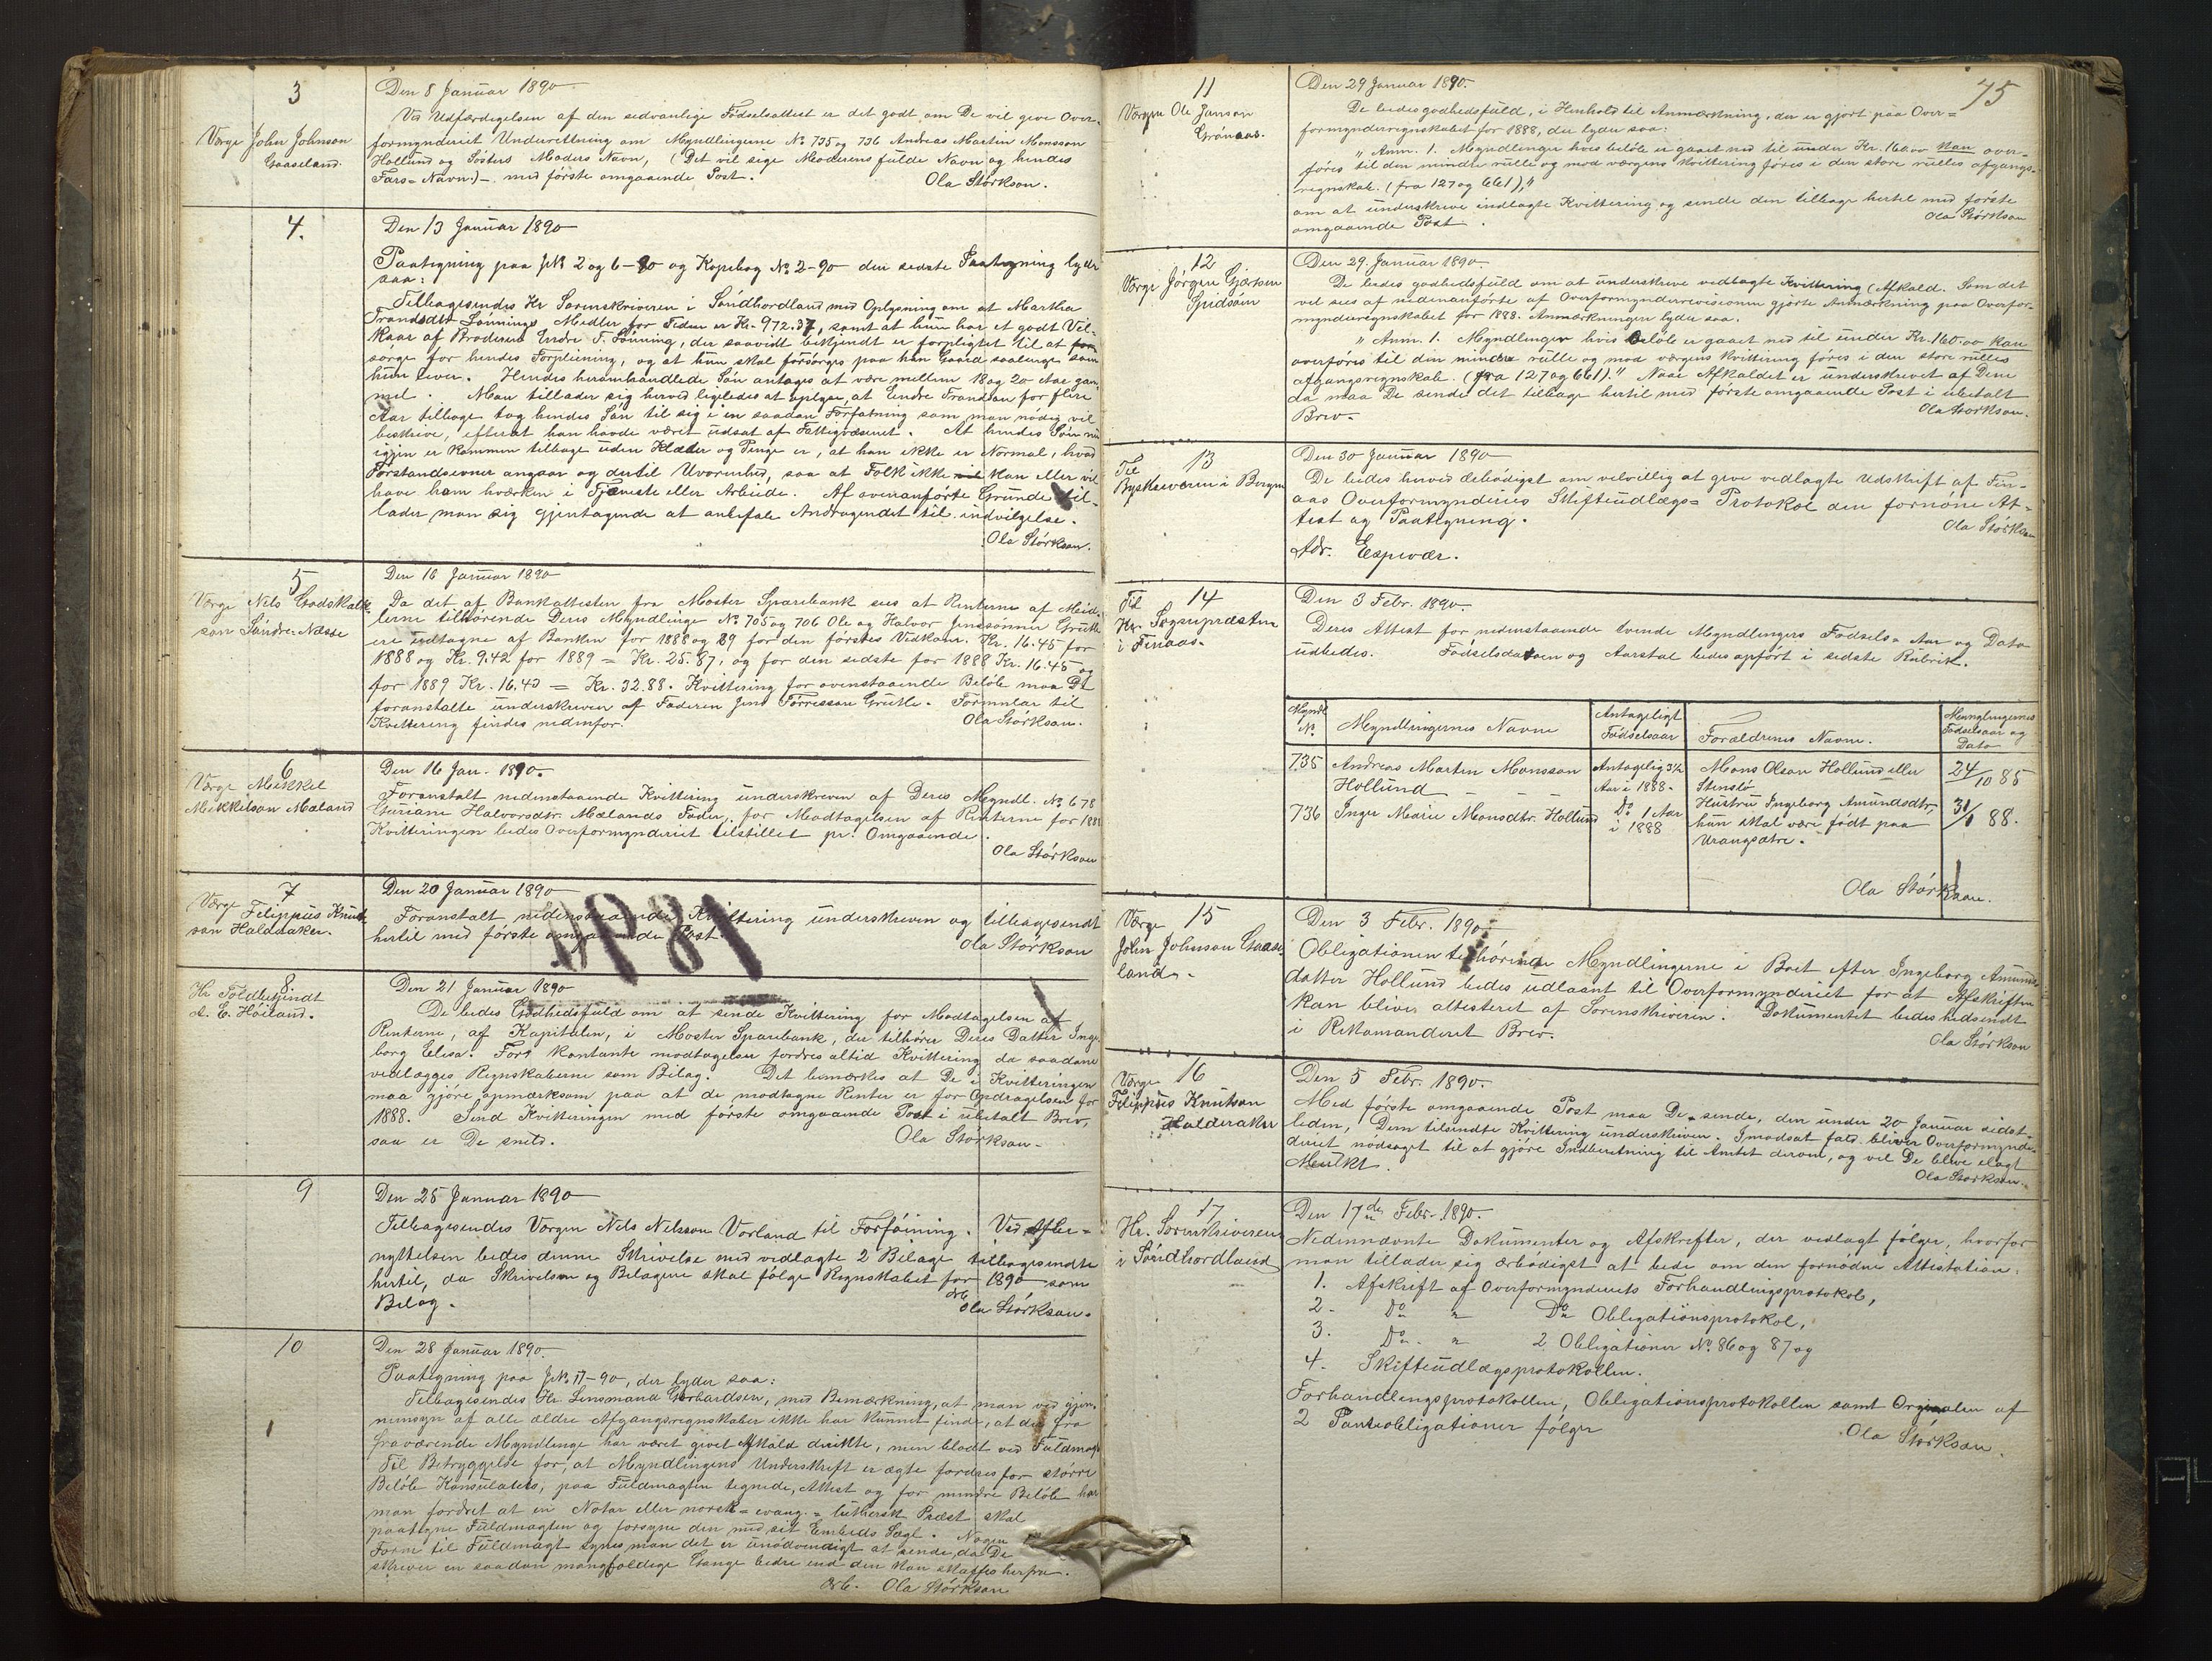 3
Værge John Johnson
Gaaseland.
Den 8 Januar 1890
Ved Udfærdigelsen af den sedvanlige Fødselsattest er det godt om De vil give Over-
formynderiet Underretning om Myndlingerne No 735 og 736 Andreas Martin Monsson
Hollund og Søsters Moders Navn, (Det vil sige Moderens fulde Navn og hendes
Fars-Navn.)-. med første omgaaende Post.
Ola Størkson.
4.
Den 13 Januar 1890
Paategning paa JN 2 og 6-90 og Kopibog No 2-90 den sidste Paategning lyder
saa:
Tilbagesendes Hr Sorenskriveren i Søndhordland med Oplysning om at Martha
Trondsdtr Lønnings Medler for Tiden er Kr. 972.37, samt at hun har et godt Vil-
kaar af Broderen Endre T. Lønning, der saavidt bekjendt er forpligtet til at
sørge for hendes Forpleining, og at hun skal forsørges paa han Gaard saalenge som
hun lever. Hendes heromhandlede Søn antages at være mellem 18 og 20 Aar gam-
mel. Man tillader sig herved ligeledes at oplyse, at Endre Trondson for flere
Aar tilbage tog hendes Søn til sig i en saadan Forfatning som man nødig vil
beskrive, efterat han havde været udsat af Fattigvæsenet. At hendes Søn nu
igjen er kommen tilbage uden Klæder og Penge er, at han ikke er Normal, hvad
Forstandsevner angaar og dertil Uvornhed, saa at Folk ikke kan eller vil
have ham hverken i Tjeneste eller Arbeide. Af ovenanførte Grunde til-
lader man sig gjentagende at anbefale Andragendet til indvilgelse.
Ola Størkson.
5
Værge Nils Godskalk-
son Søndre-Næsse
Den 16 Januar 1890
Da det af Bankattesten fra Moster Sparebank sees at Renterne af Mid-
lerne tilhørende Deres Myndlinge No 705 og 706 Ole og Halvor Jenssønner Grutle
ere udtagne af Banken for 1888 og 89 for den førstes Vidkom. Kr. 16.45 for
1888 og Kr. 9.42 for 1889 = Kr. 25.87, og for den sidste for 1888 Kr. 16.45 og
for 1889 Kr. 16.43 = Kr. 32.88. Kvittering for ovenstaaende Beløb maa De
foranstalte underskreven af Faderen Jens Tørresson Grutle. Formular til
Kvittering findes nedenfor.
Ola Størkson.
6
Værge Mikkel
Mikkelson Mæland
Den 16 Jan. 1890.
Foranstalt nedenstaaende Kvittering underskreven af Deres Myndl. No 678
Guriane Halvorsdtr. Mælands Fader, for Modtagelsen af Renterne for 1888
Kvitteringen bedes Overformynderiet tilstillet pr. Omgaaende.
Ola Størkson
7
Værge Filippus Knut-
son Halderaker.
Den 20 Januar 1890
Foranstalt nedenstaaende Kvittering underskreven og tilbagesendt
hertil med første omgaaende Post.
Ola Størkson
8.
Hr Toldbetjendt
E. Høiland.
Den 21 Januar 1890
De bedes Godhedsfuld om at sende Kvittering for Modtagelsen af
Renterne, af Kapitalen, i Moster Sparebank, der tilhører Deres Datter Inge-
borg Elisa. For kontante modtagelser fordres altid Kvittering da saadane
vedlægges Regnskaberne som Bilag. Det bemærkes at De i Kvitteringen
maa gjøre opmærksom paa at de modtagne Renter er for Opdragelsen for
1888. Send Kvitteringen med første omgaaende Post i ubetalt Brev,
saa er De snild.
Ola Størkson-
9
Den 25 Januar 1890
Tilbagesendes Værgen Nils Nilsson Vorland til Forføining. Ved Afbe-
nyttelsen bedes denne Skrivelse med vedlagte 2 Bilage tilbagesendte
hertil, da Skrivelsen og Bilagene skal følge Regnskabet for 1890 som
Bilag.
Ærb
Ola Størkson.
10
Den 28 Januar 1890.
Paategning paa JNo 17-90, der lyder saa:
Tilbagesendes Hr. Lensmand Gerhardsen, med Bemærkning, at man ved gjen-
nemsyn af alle ældre Afgangsregnskaber ikke har kunnet finde, at der fra
fraværende Myndlinge har været givet Afkald direkte, men blodt ved Fuldmagt
Til Betryggelse for, at Myndlingens Underskrift er ægte fordres for større
Beløb Konsulatets, paa Fuldmagten tegnede, Attest og for mindre Beløb har
man fordret at en Notar eller norsk-evang.-luthersk Præst skal
paategne Fuldmagten og forsyne den med sit Embeds Segl. Nogen
Form til Fuldmagt synes man det er unødvendigt at sende, da De
skriver en saadan mangfoldige Gange bedre end den kan skaffes herfra.
Ærb. Ola Størkson
1891
75
11
Værgen Ole Janson
Grønaas.
Den 29 Januar 1890.
De bedes godhedsfuld, i Henhold til Anmærkning, der er gjort paa Over=
formynderregnskabet for 1888, der lyder saa:
"Anm. 1. Myndlinger hvis beløb er gaaet ned til under Kr. 160.00 kan over-
føres til den mindre rulle og mod værgens kvittering føres i den store rulles afgangs-
regnskab. (fra 127 og 661)."
om at underskrive indlagte Kvittering og sende den tilbage hertil med første
omgaaende Post.
Ola Størkson
12
Værge Jørgen Gjørson
Spidsøen
Den 29. Januar 1890.
De bedes godhedsfuld om at underskrive vedlagte Kvittering (Afkald. Som det
vil sees af nedenanførte af Overformynderrevisionen gjørte Anmærkning paa Overfor-
mynderregnskabet for 1888. Anmærkningen lyder saa.
"Anm. 1. Myndlinger hvis Beløb er gaaet ned til under Kr. 160.00 kan
overføres til den mindre rulle og mod værgens kvittering føres i den store rulles
afgangsregnskab. (fra 127 og 661)." Naar Afkaldet er underskrevet af Dem
da maa De sende det tilbage hertil med første omgaaende Post i ubetalt
Brev.
Ola Størkson.
13
Til
Byskriveren i Bergen
Den 30 Januar 1890
De bedes herved ærbødigst om velvillig at give vedlagte Udskrift af Fin-
aas Overformynderies Skifteudlægs= Protokol den fornøne At-
test og Paategning.
Ola Størkson
Adr. Espevær.
14
Til
Hr. Sognepræsten
i Finaas.
Den 3 Febr. 1890.
Deres Attest for nedenstaaende tvende Myndlingers Fødsels- Aar og Dato
udbedes. Fødselsdatoen og Aarstal bedes opført i sidste Rubrik.
Myndl. No. Myndlingernes Navne Antageligt Fødselsaar Forældrenes Navne. Mynglingernes Fødselsaar og Dato
735 Andreas Martin Monsson Antagelig 3½ Mons Olson Hollund eller 24/10 85
Hollund Aar i 1888. Stenslø
736 Inger Marie Monsdtr. Hollund Do 1 Aar Hustru Ingeborg Amundsdtr, 31/1 88.
i 1888 hun skal være født paa
Urangsætre.
Ola Størkson.
15
Værge
John Johnson Gaase-
land.
Den 3 Febr. 1890
Obligationen tilhørende Myndlingerne i Boet efter Ingeborg Amunds-
datter Hollund bedes udlaant til Overformynderiet for at Afskriften
kan bliver attesteret af Sorenskriveren. Dokumentet bedes hidsendt
i Rekamanderet Brev.
Ola Størkson
16
Værge
Filippus Knutson
Halderaker
Den 5 Febr. 1890.
Med første omgaaende Post maa De sende, den under 20 Januar sidst-
leden, Dem tilsendte Kvittering underskreven. I modsat fald bliver Overformynde-
deriet nødsaget til at gjøre Indberetning til Amtet derom, og vil De blive ilagt
Mulkt.
Ola Størkson.
17
Hr. Sorenskriveren
i Søndhordland
Den 17de Febr. 1890.
Nedennævnte Dokumenter og Afskrefter, der vedlagt følger, hvorfor
man tillader sig ærbødigst at bede om den fornødne Attestation.
1. Afskrift af Overformynderiets Forhandlingsprotokol,
2. Do " Do Obligationsprotokol,
3. Do " 2 Obligationer No. 86 og 87 og
4. Skifteudlægsprotokollen.
Forhandlingsprotokollen, Obligationsprotokollen samt Orginalen af
2 Panteobligationer følger
Ola Størkson.